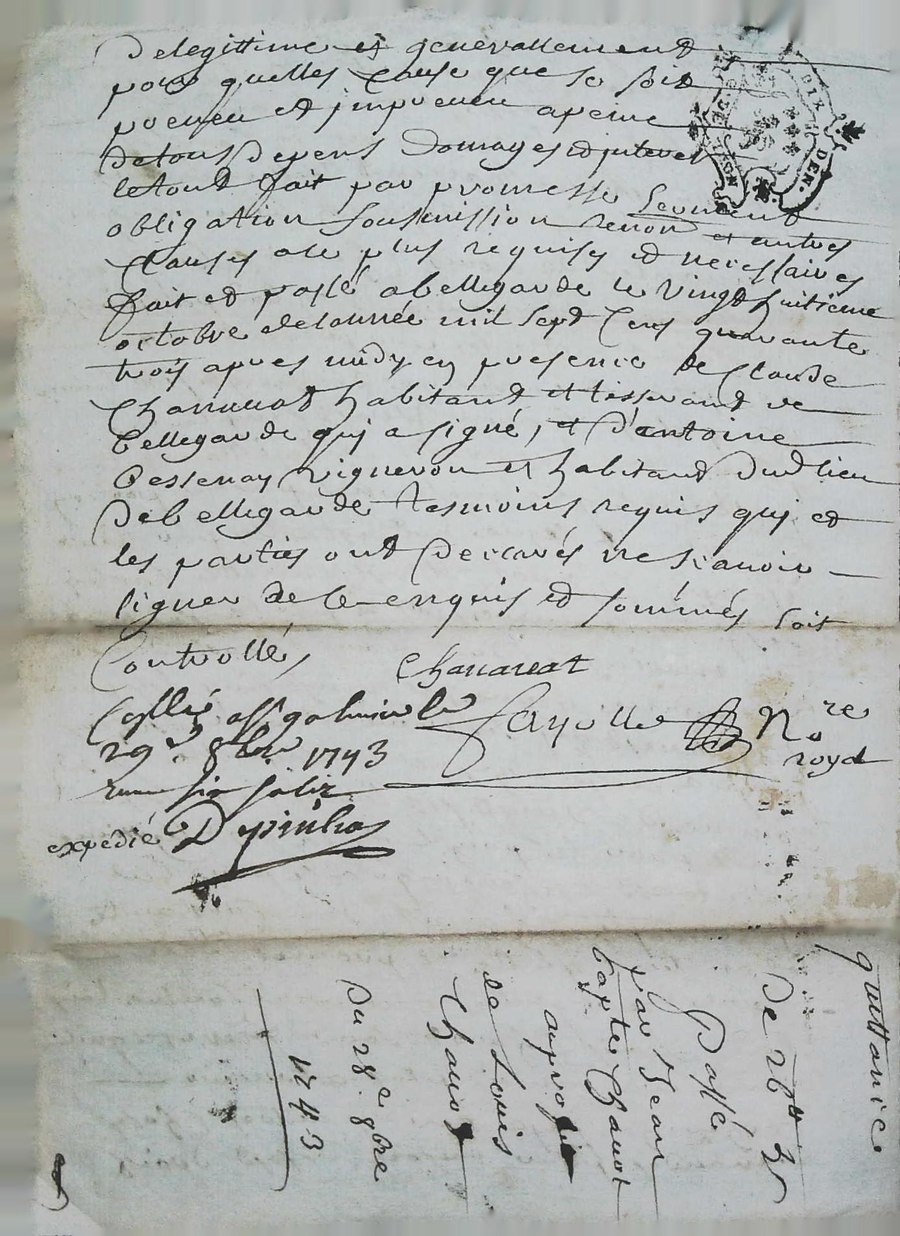 De legittime et generallement
pour quelles Cause que se soit
preveu et impreveu apeine
de tous depens domages et interet
le tout fait par promesse serment
obligation sousmission renon et autres
Clauses ale plus requises et necessaires
fait et passé a bellegarde le vingt huitieme
octobre de lannée mil sept Cens quarante
trois apres midy en presence de Claude
Chanuuat habitant et tisserand de
bellegarde qui a signé, et d'antoine
Vigneron et habitant dud lieu
de bellegarde tesmoins requis qui et
les parties ont declarés ne scavoir
signer de ce enquis et sommés soit
Controllé,
Chanaueat
Collé a
29e 8bre 1743
Fayolle Nre
royal
expedié
quittance
De 26tt
passé
par Jean
bapte Chauot
au profit
de Louis
Chauot
Du 28e 8bre
1743
DIX DEN.